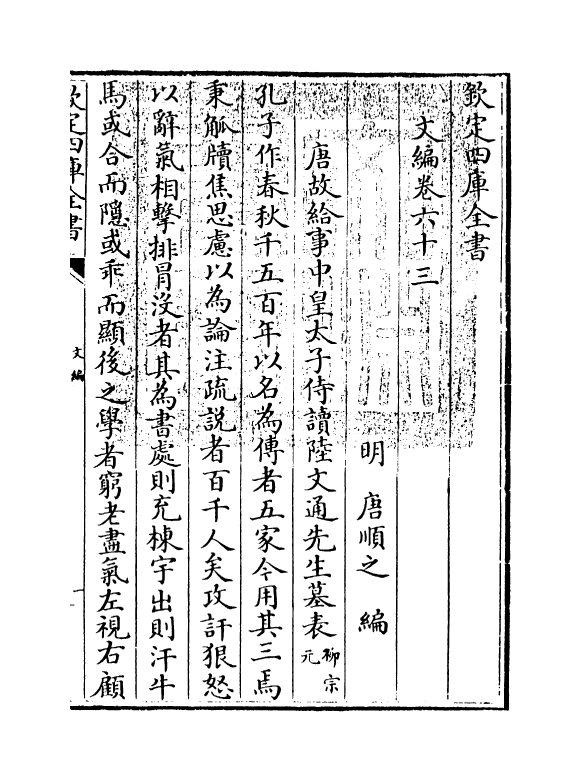 欽定四庫全書
文編卷六十三
明 唐順之 編
唐故給事中皇太子侍讀陸文通先生墓表 柳宗元
孔子作春秋千五百年以名為傳者五家今用其三焉
秉觚牘焦思慮以為論注疏說者百千人矣攻訐狠怒
以辭氣相擊排冐沒者其為書處則充棟宇出則汗牛
馬或合而隠或乖而顯後之學者窮老盡氣左視右顧
欽定四庫全書
文編
一